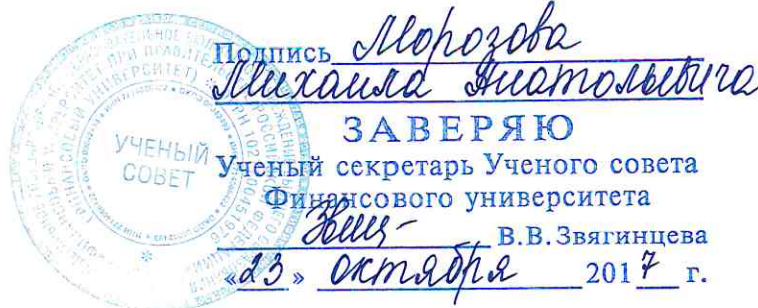 Подпись Морозова
Михаила Анатольевича
ЗАВЕРЯЮ
Ученый секретарь Ученого совета
Финансового университета
В.В.Звягинцева
«23» октября 2017 г.
УЧЕНЫЙ
СОВЕТ